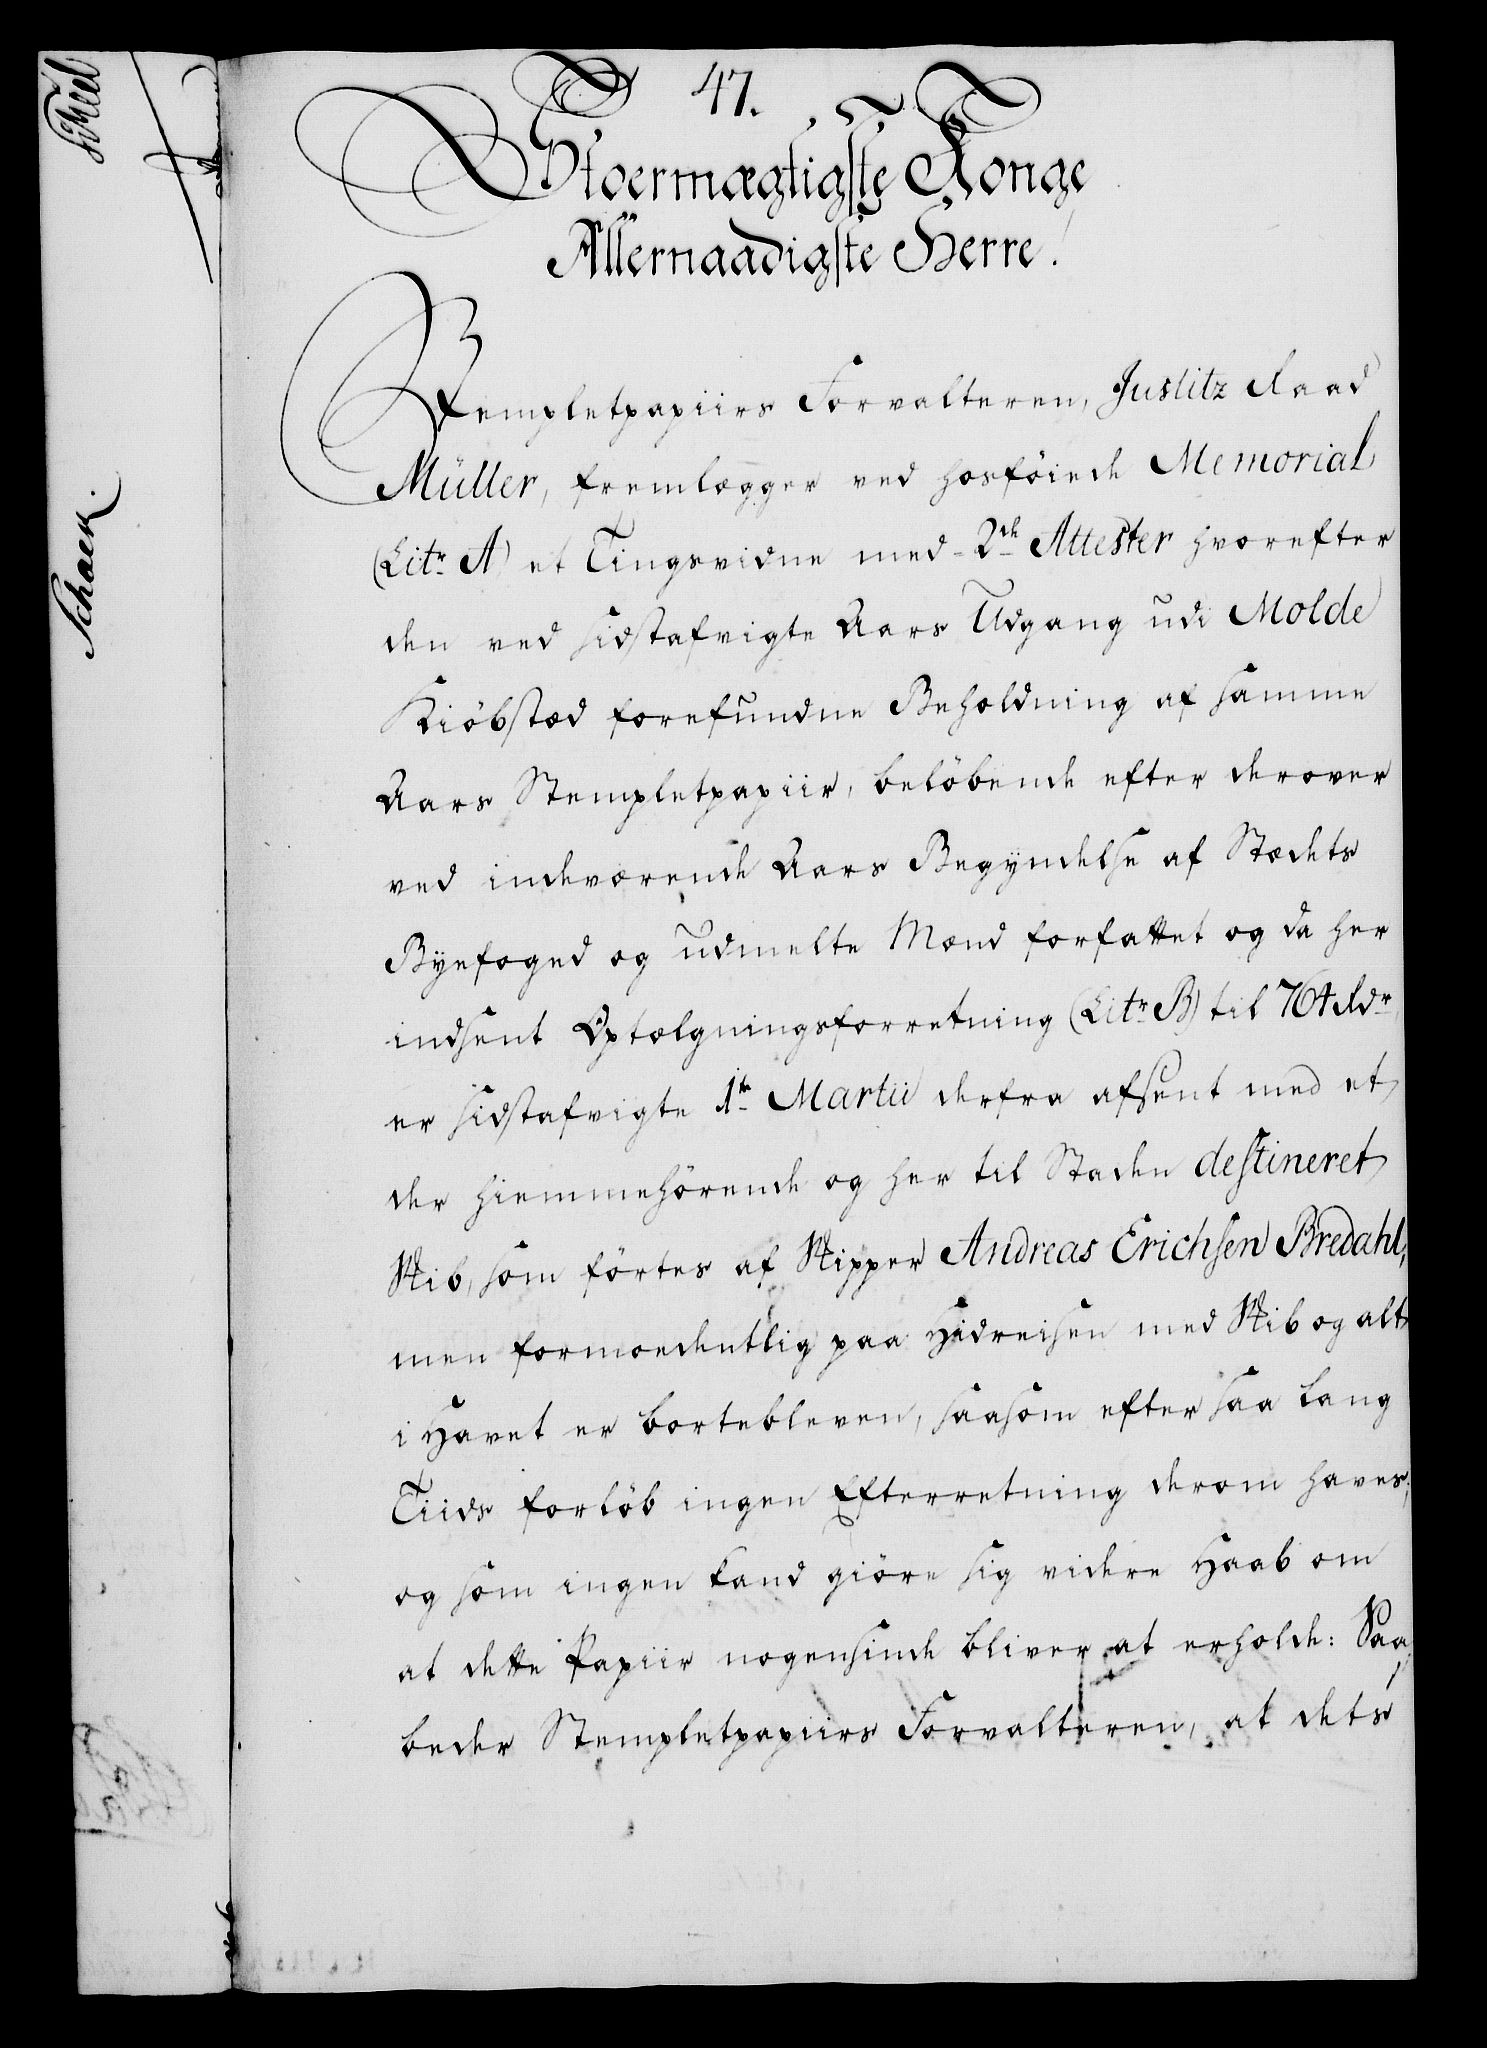 47.
Stoermægtigste Konge
Allernaadigste Herre!
Stempletpapiirs Forvalteren, Justitz Raad
Müller, fremlægger ved hosföiede Memorial
(Litr A) et Tingsvidne med 2de Attester hvorefter
den ved sidstafvigte Aars Udgang udi Molde
Kiöbstæd forefundne Beholdning af samme
Aars Stempletpapiir, belöbende efter derover
ved indeværende Aars Begyndelse af Stædets
Byefoged og udmelte Mænd forfattet og da her
indsent Optælgningsforretning (Litr B) til 764 Rdr,
er sidstafvigte 1te Martii derfra afsent med et
der hiemmehörende og her til Staden destineret
Skib, som förtes af Skipper Andreas Erichsen Bredahl,
men formoedentlig paa Hidreisen med Skib og alt
i Havet er borteblevne, saasom efter saa lang
Tiids forlöb ingen Efterretning derom haves;
og som ingen kand giöre sig videre Haab om
at dette Papiir nogensinde bliver at erholde: Saa
beder Stempletpapiirs Forvalteren, at dets
Scheel
Schaer.